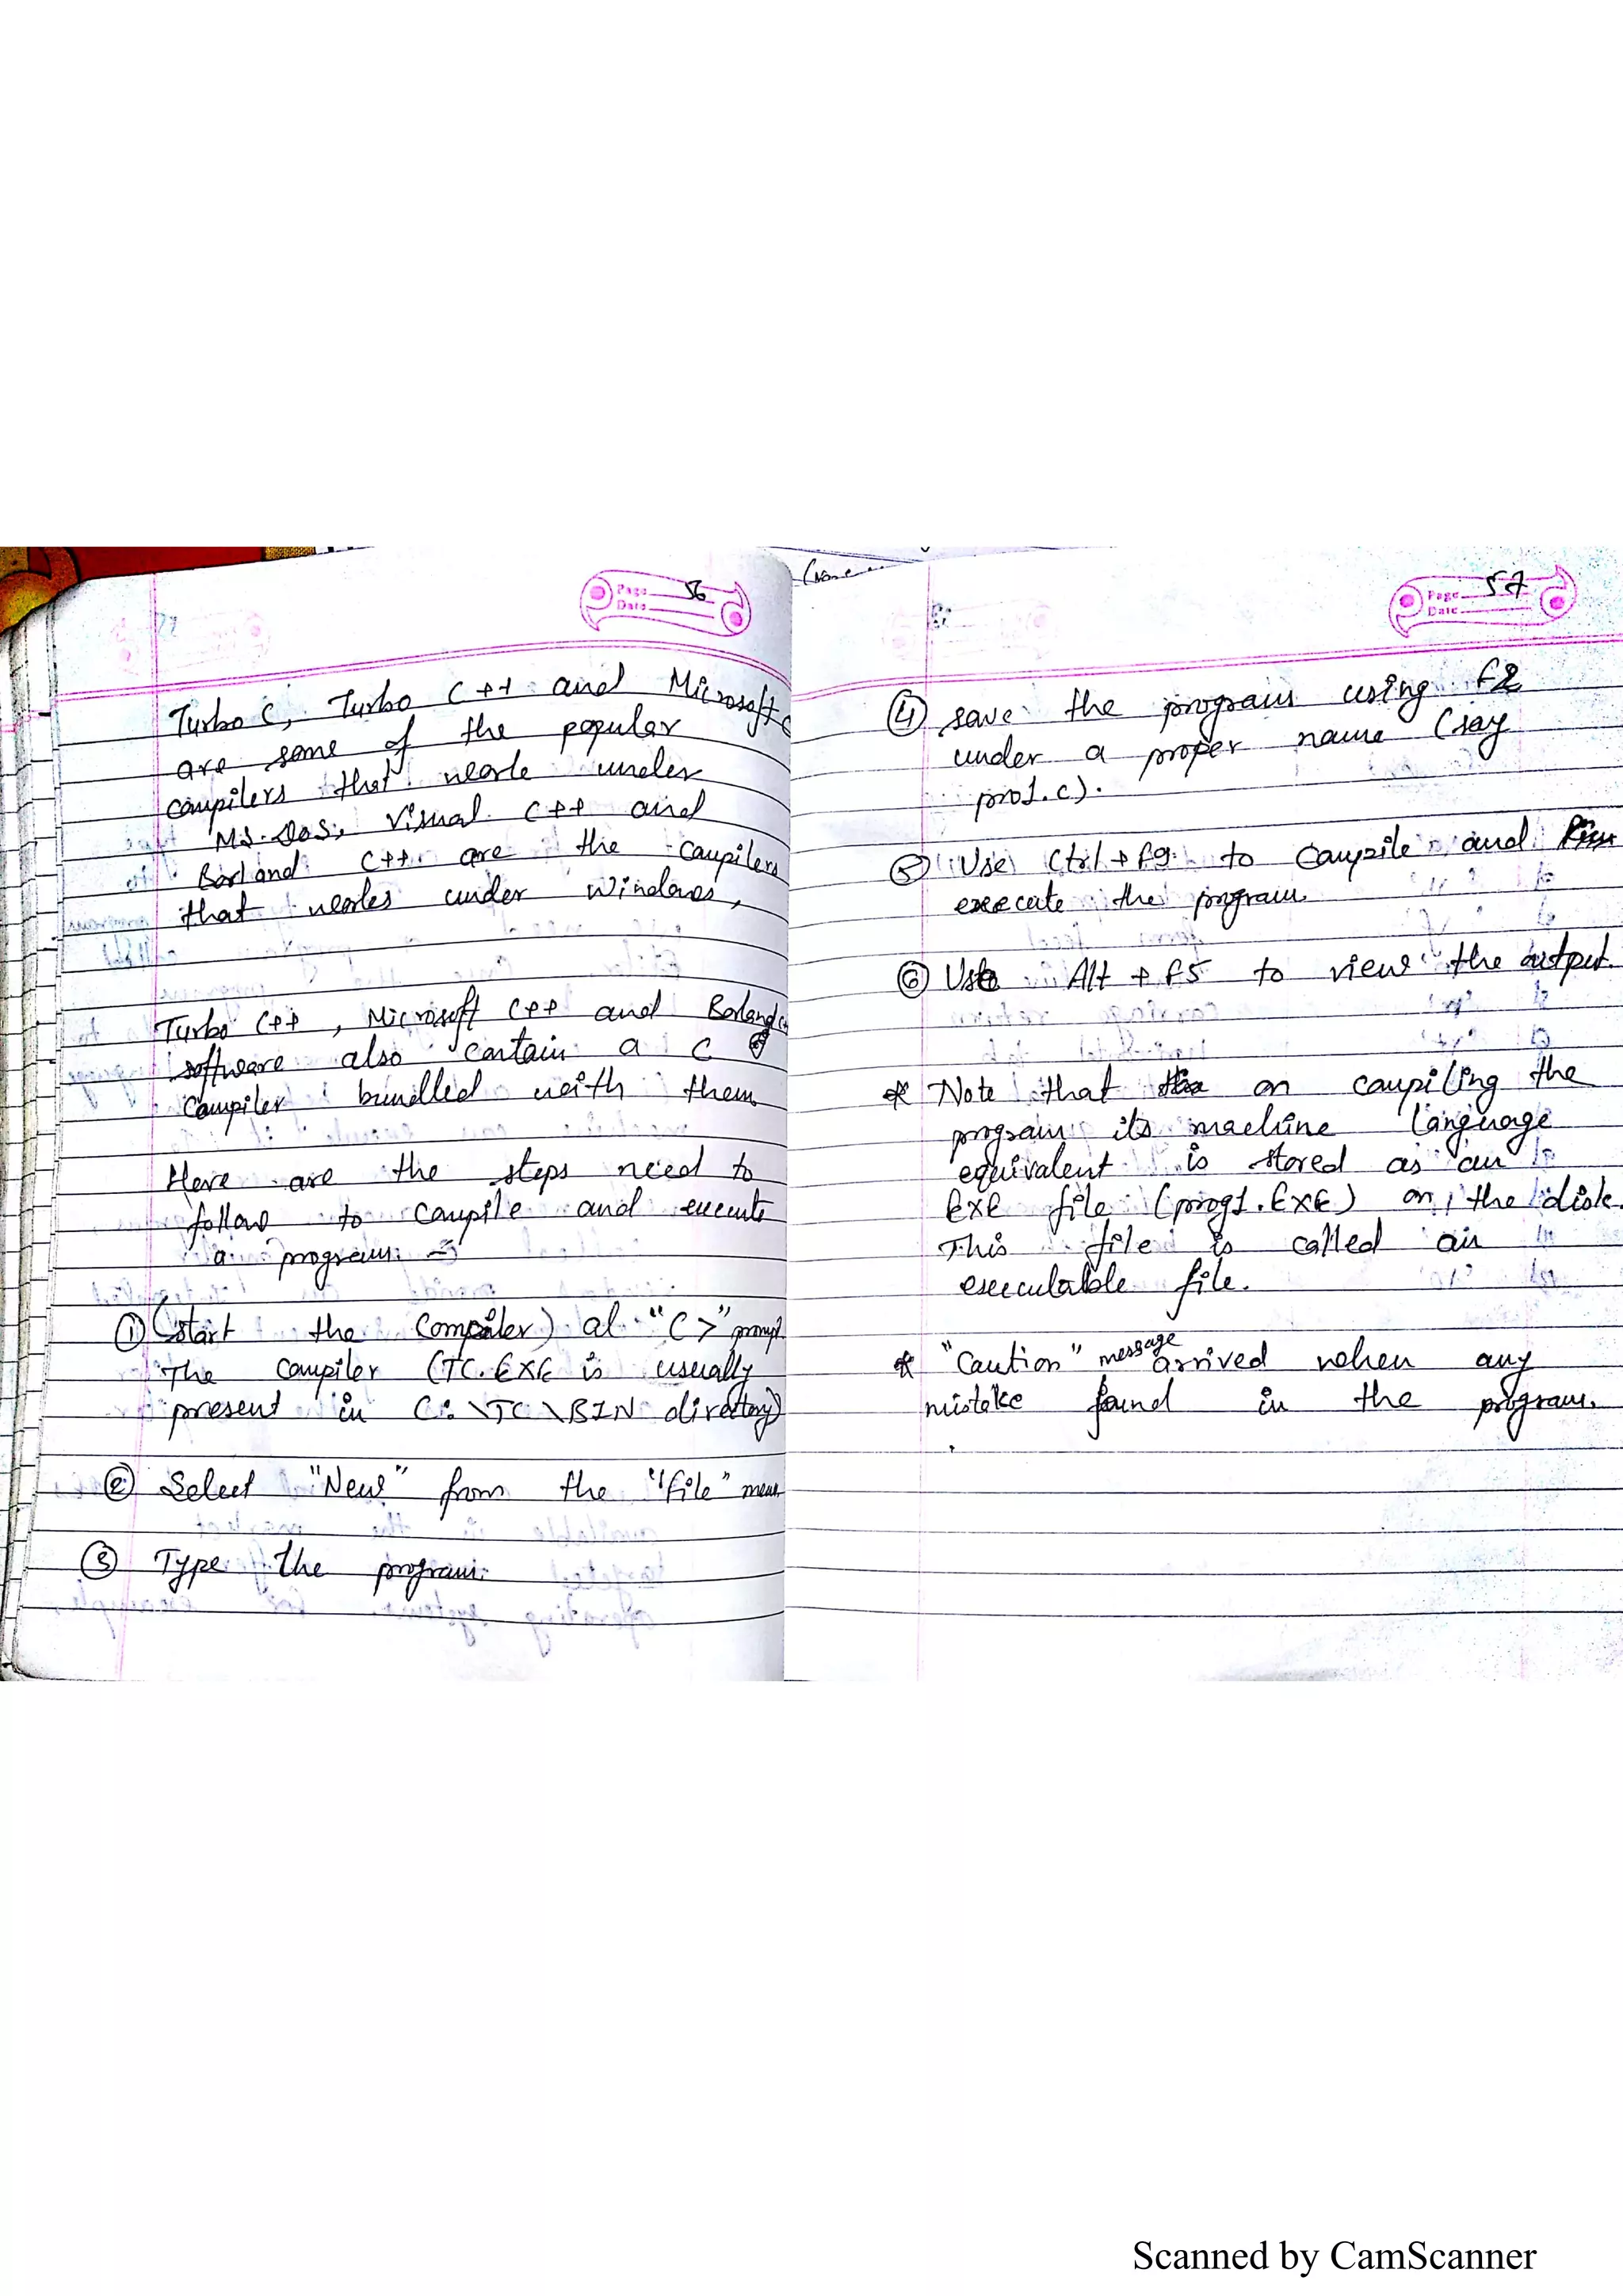 Page 56
Date
Turbo C, Turbo C++ and Microsoft C
are some of the popular
compilers that work under
MS-DOS, Visual C++ and
Borland C++ are the compilers
that works under windows,
Turbo C++, Microsoft C++ and Borland C++
software also contain a C
Compiler bundled with them
Here are the steps need to
follow to compile and execute
a program
① (start the Compiler) at "C >" prompt
The compiler (TC.EXE is usually
present in C:\TC\BIN directory)
② Select "New" from the "file" menu
③ Type the program.
Page 57
Date
④ save the program using F2
under a proper name (say
pro1.c).
⑤ Use Ctrl + F9 to compile and
execute the program.
⑥ Use Alt + F5 to view the output.
* Note that on compiling the
program its machine language
equivalent is stored as an
EXE file (prog1.EXE) on the disk.
This file is called an
executable file.
* "Caution" message arrived when any
mistake found in the program.
Scanned by CamScanner